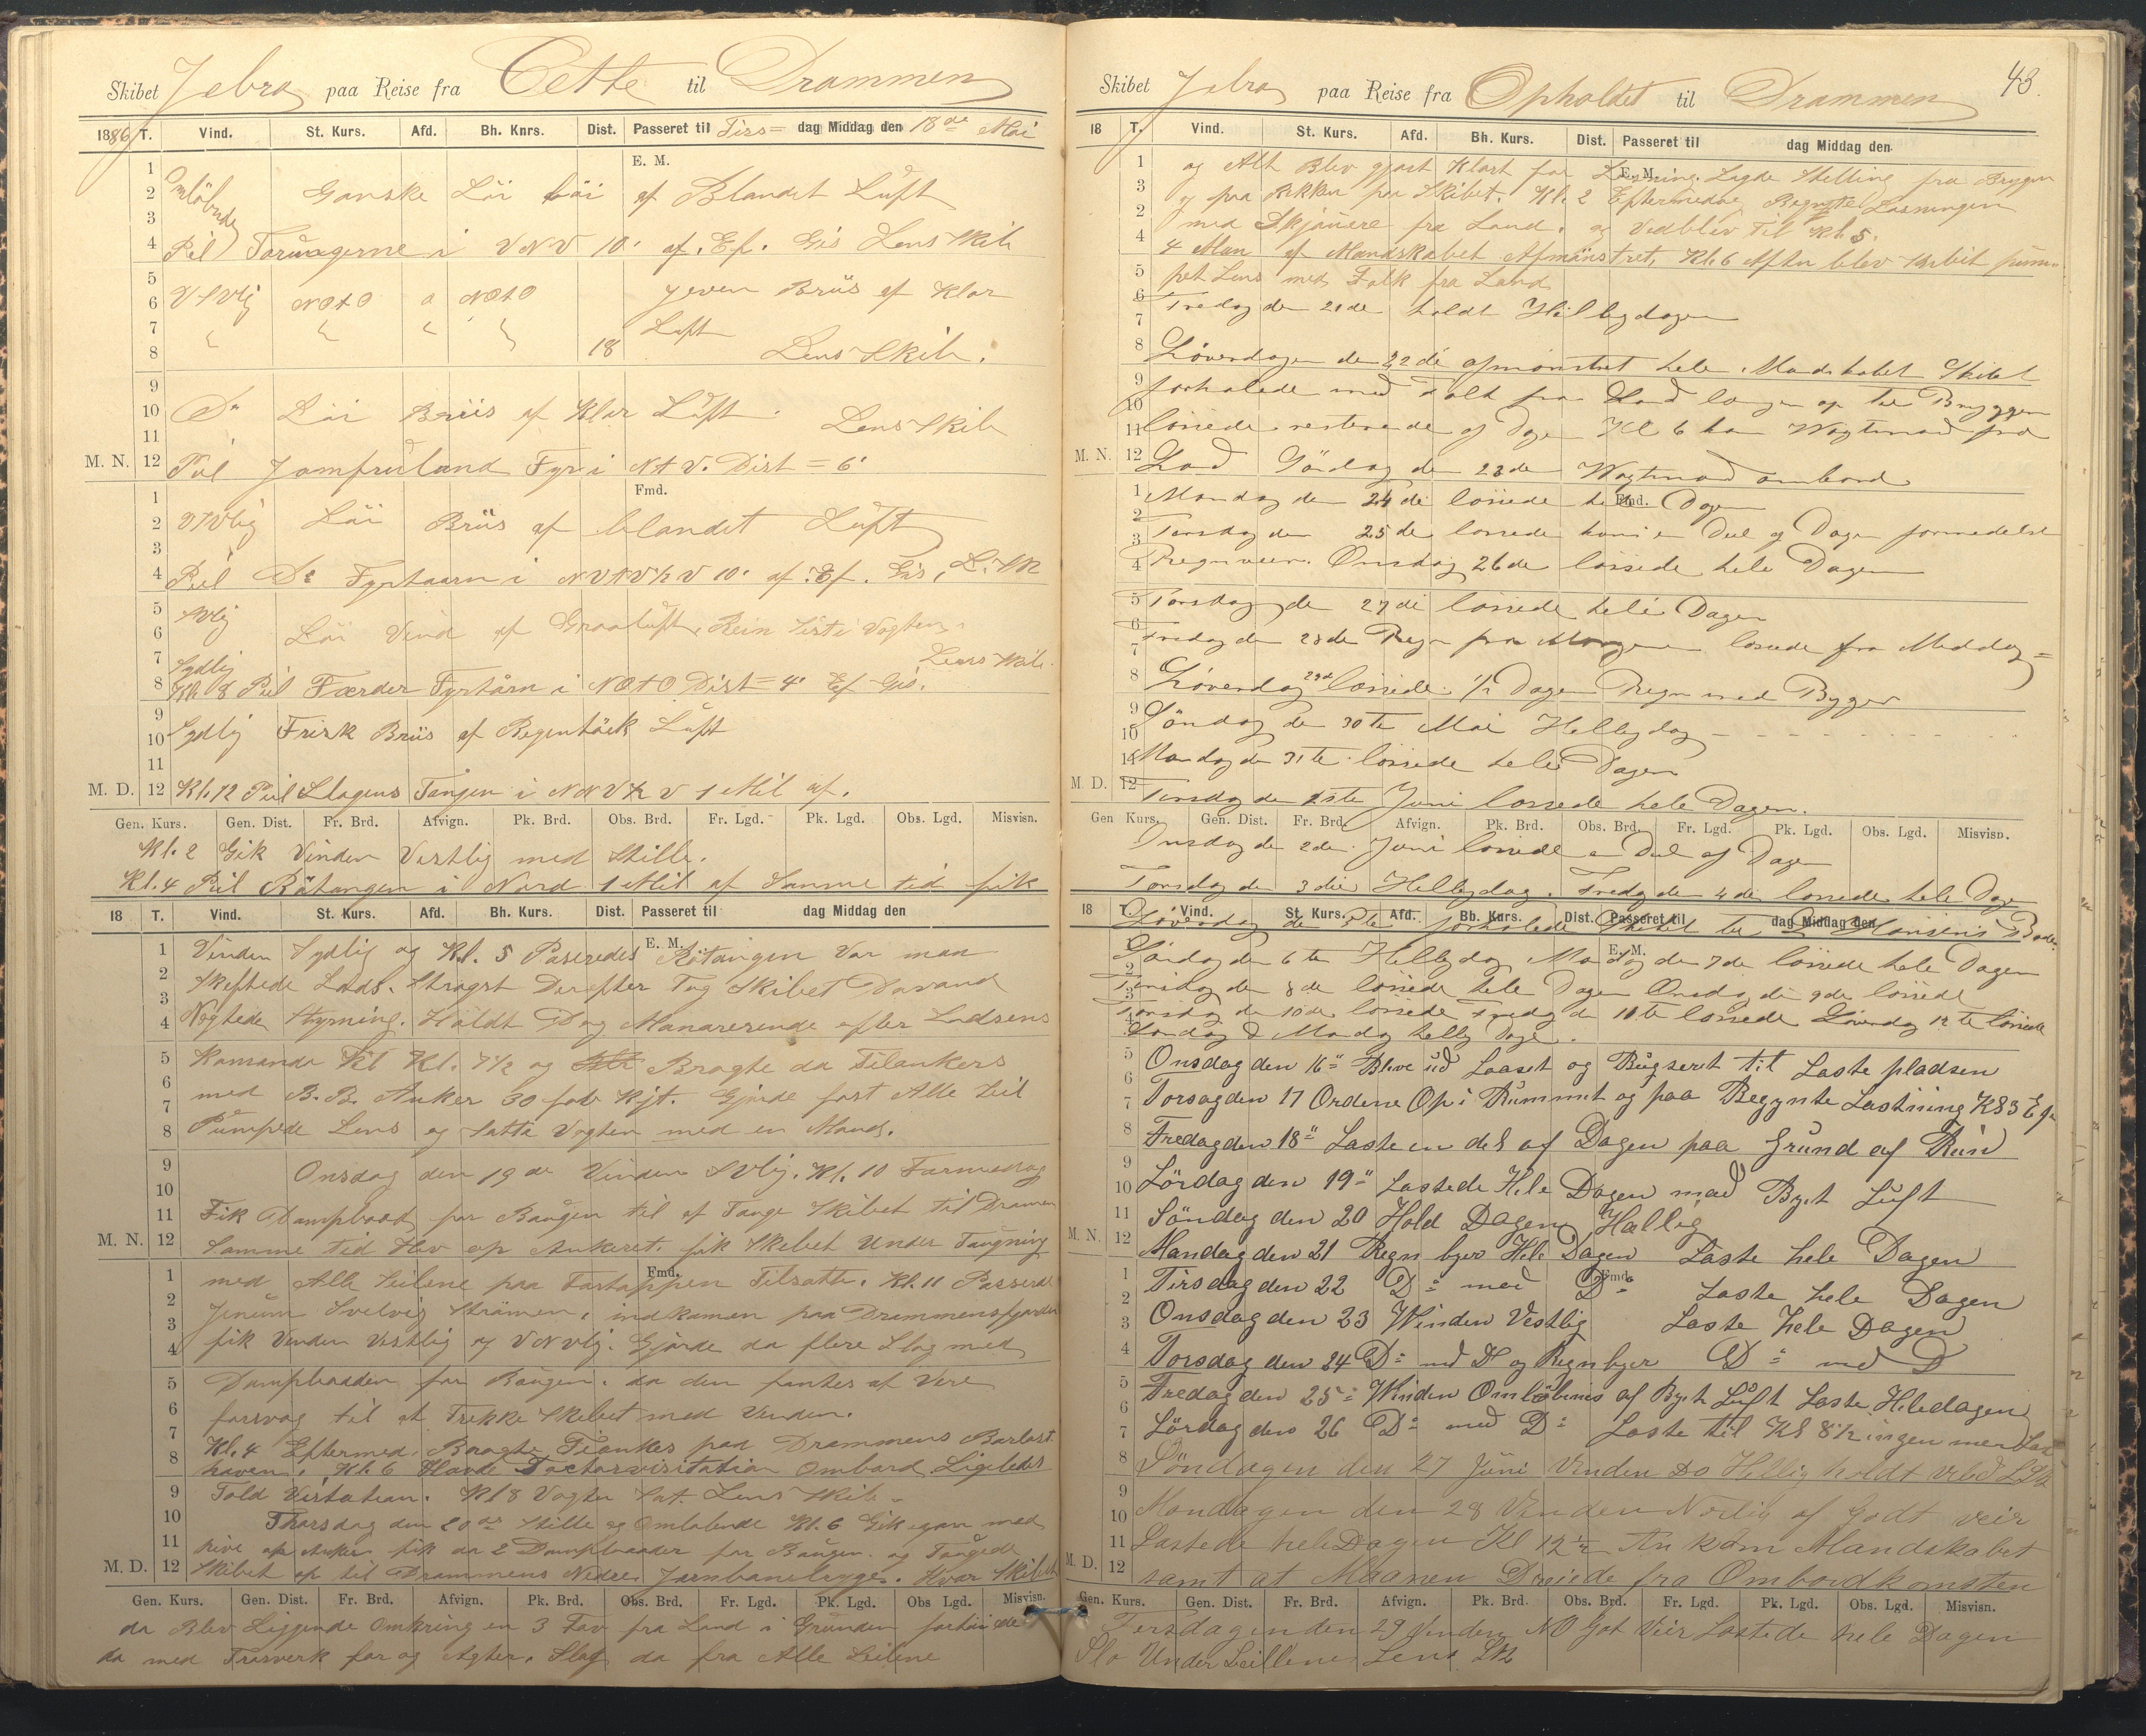 Skibet Jebra paa Reise fra Cette til Drammen
1886 T. Vind. St. Kurs. Afd. Bh. Knrs. Dist. Passeret til Tirs= dag Middag den 18de Mai
E. M.
1
2 Omløbnde Ganske Löi af Blandet Luft
3
4 Peil i VNV 10' af. Ef. Gis Lens Skib
5
6 NOtO a NOtO Jeven Briis af Klar
7 Luft
8 18 Lens Skib.
9
10 Do Löi Briis af Klar Luft. Lens Skib
11
M. N. 12 Peil Jomfruland Fyr i NtV. Dist = 6'
Fmd.
1
2 Löi Briis af blandet Luft
3
4 Peil Do Fyrtaarn i NVtV½V 10' af. Ef. Gis, L. Sk
5
6 Löi Vind af Graaluft, Rein sist i Vagten
7 Sydlig Lens Skib.
8 Kl. 8 Peil Færder Fyrtårn i NOtO Dist = 4' Ef Gis.
9
10 Sydlig Frisk Briis af Regentück Luft
11
M. D. 12 Kl. 12 Peil Slagens Tangen i NNV½V 1 Mil af.
Gen. Kurs. Gen. Dist. Fr. Brd. Afvign. Pk. Brd. Obs. Brd. Fr. Lgd. Pk. Lgd. Obs. Lgd. Misvisn.
Kl. 2 Gik Vinden Vestlig med Stille.
Kl. 4 Peil Rötangen i Nord 1 Mil af Samme tid fik
18 T. Vind. St. Kurs. Afd. Bh. Kurs. Dist. Passeret til dag Middag den
E. M.
1 Vinden Sydlig og Kl. 5 Passeredes Rötangen Var man
2 Skeftede Lods. Stragst Derefter Tog Skibet
3
4 Styrning. Holdt Dog Manarerende efter Lodsens
5 Komande til Kl. 7½ og Bragte da Tilankers
6
7 med B. B. Anker 30 fav Kjt. Gjorde fast Alle Seil
8 Pumpede Lens og Satte Vagten med en Mand.
9
10 Onsdag den 19de Vinden SVlig. Kl. 10 Formedag
11 Fik Dampbaad for Baugen til at Tauge Skibet til Dramen
M. N. 12 Samme tid Hev op Ankeret. fik Skibet Under Taugning
Fmd.
1 med Alle Seilene paa Tilsatte. Kl. 11 Passerede
2
3 Jenum Svelvig Strömen, indkomen paa Drammensfjorden
4 fik Vinden Vestlig og VNVlig. Gjorde da flere Slag med
5 Dampbaaden for Baugen. da den fantes at Vere
6 forsvag til at Trekke Skibet med Vinden.
7 Kl. 4 Eftermed. Bragte Tilankes paa Drammens Barlast
8 haven. Kl. 6 Havde Doctorvisitation Ombord Ligeledes
9 Told Visitation. Kl 8 Vagten Sat. Lens Skib
10 Thorsdag den 20de Stille og Omlobende Kl. 6 Gik igan med
11 hive op Anker fik da 2 Dampbaader for Baugen og Taugede
M. D. 12 Skibet op til Drammens Nedre Jernbanebrygge. Hvor Skibet
Gen. Kurs. Gen. Dist. Fr. Brd. Afvign. Pk. Brd. Obs. Brd. Fr. Lgd. Pk. Lgd. Obs Lgd. Misvisn.
da Blev Liggende Omkring en 3 Fav fra Land i Grunden fortöiede
da med Trosverk for og Agter. Slog da fra Alle Seilene
43.
Skibet Jebra paa Reise fra Opholdet til Drammen
18 T. Vind. St. Kurs. Afd. Bh. Kurs. Dist. Passeret til dag Middag den
E. M.
1 og Alt Blev gjort Klart for Losning. Lagde Stelling fra Bryggen
3 og paa Rekken paa Skibet. Kl. 2 Eftermedag Begynte Losningen
2 med Skjauere fra Land. og Vedblev Til Kl. 5.
4 4 Man af Mandskabet Afmönstret, Kl. 6 Aften blev Skibet pum-
5 pet Lens med Folk fra Land
6 Fredag den 21de holdt Helligdagen
7
8 Löverdagen den 22de afmönstret hele Mandskabet Skibet
9 forhalede med Folk fra Land længer op til Bryggen
10
11 lössede resterende af Dagen Kl 6 kom Wagtmand fra
M. N. 12 Land Söndag den 23de Wagtmand ombord
Fmd.
1 Mandag den 24de lössede hele Dagen
2
3 Tirsdag den 25de lossede kuns en Deel af Dagen formedelst
4 Regnveir. Onsdag 26de lössede hele Dagen
5 Torsdag den 27de lössede hele Dagen
6
7 Fredag den 28de Regn fra Morgenen lossede fra Meddag=
8 Löverdag 29de lössede ½ Dagen Regn med Byger
9
10 Söndag den 30te Mai Helligdag
11 Mandag den 31te lössede hele Dagen
M. D. 12 Tirsdag den 1ste Juni lossede hele Dagen.
Gen Kurs. Gen. Dist. Fr. Brd. Afvign. Pk. Brd. Obs. Brd. Fr. Lgd. Pk. Lgd. Obs. Lgd. Misvisn.
Onsdag den 2den Juni lossede en Deel af Dagen
Torsdag den 3die Helligdag. Fredag den 4de lossede hele Dagen
18 T. Vind. St. Kurs. Afd. Bh. Kurs. Dist. Passeret til dag Middag den
Löverdag den 5te forhalede Skibet til Hansens
E. M.
Söndag den 6te Helligdag Mandag den 7de lössede hele Dagen
2
3 Tirsdag den 8de lössede hele Dagen Onsdag den 9de lössede
Torsdag den 10de lössede Fredag den 11te lossede Löverdag 12te lössede
4 Söndag & Mandag hellig Dage.
5 Onsdag den 16" Bleve ud Laaset og Bugseret til Laste pladsen
6
7 Torsagden 17 Ordene Op i Rummet og paa Begynte Lastning Kl 3
8 Fredag den 18" Laste en del af Dagen paa Grund af Rein
9
10 Lördag den 19" Lastede Hele Dagen mad Bygt Luft
11 Söndag den 20 Hold Dagen Hallig
M. N. 12 Mandag den 21 Regn byer Hele Dagen Laste hele Dagen
Fmd.
1 Tirsdag den 22 Do med Do Laste hele Dagen
2
3 Onsdag den 23 Winden Vestlig Laste hele Dagen
4 Torsdag den 24 Do med D og Regn byer Do med D
5 Fredag den 25 Winden Omlöbenis af Bygt Luft Laste Hele dagen
6
7 Lördag den 26 Do med Do Laste til Kl 8½ ingen mer
8 Söndagen den 27 Juni Vinden Do Hellig holdt
9
10 Mandagen den 28 Vinden Norlig af Godt veir
11 Lastede hele Dagen Kl 12½ An kom Mandskabet
M. D. 12 samt at Maanen Dreiede fra Ombordkomsten
Gen. Kurs. Gen. Dist. Fr. Brd. Afvign. Pk. Brd. Obs. Brd. Fr. Lgd. Pk. Lgd. Obs. Lgd. Misvisn.
Tirsdagen den 29 Vinden NO Got Veir Lastede hele Dagen
Slo Under Seillene Lens